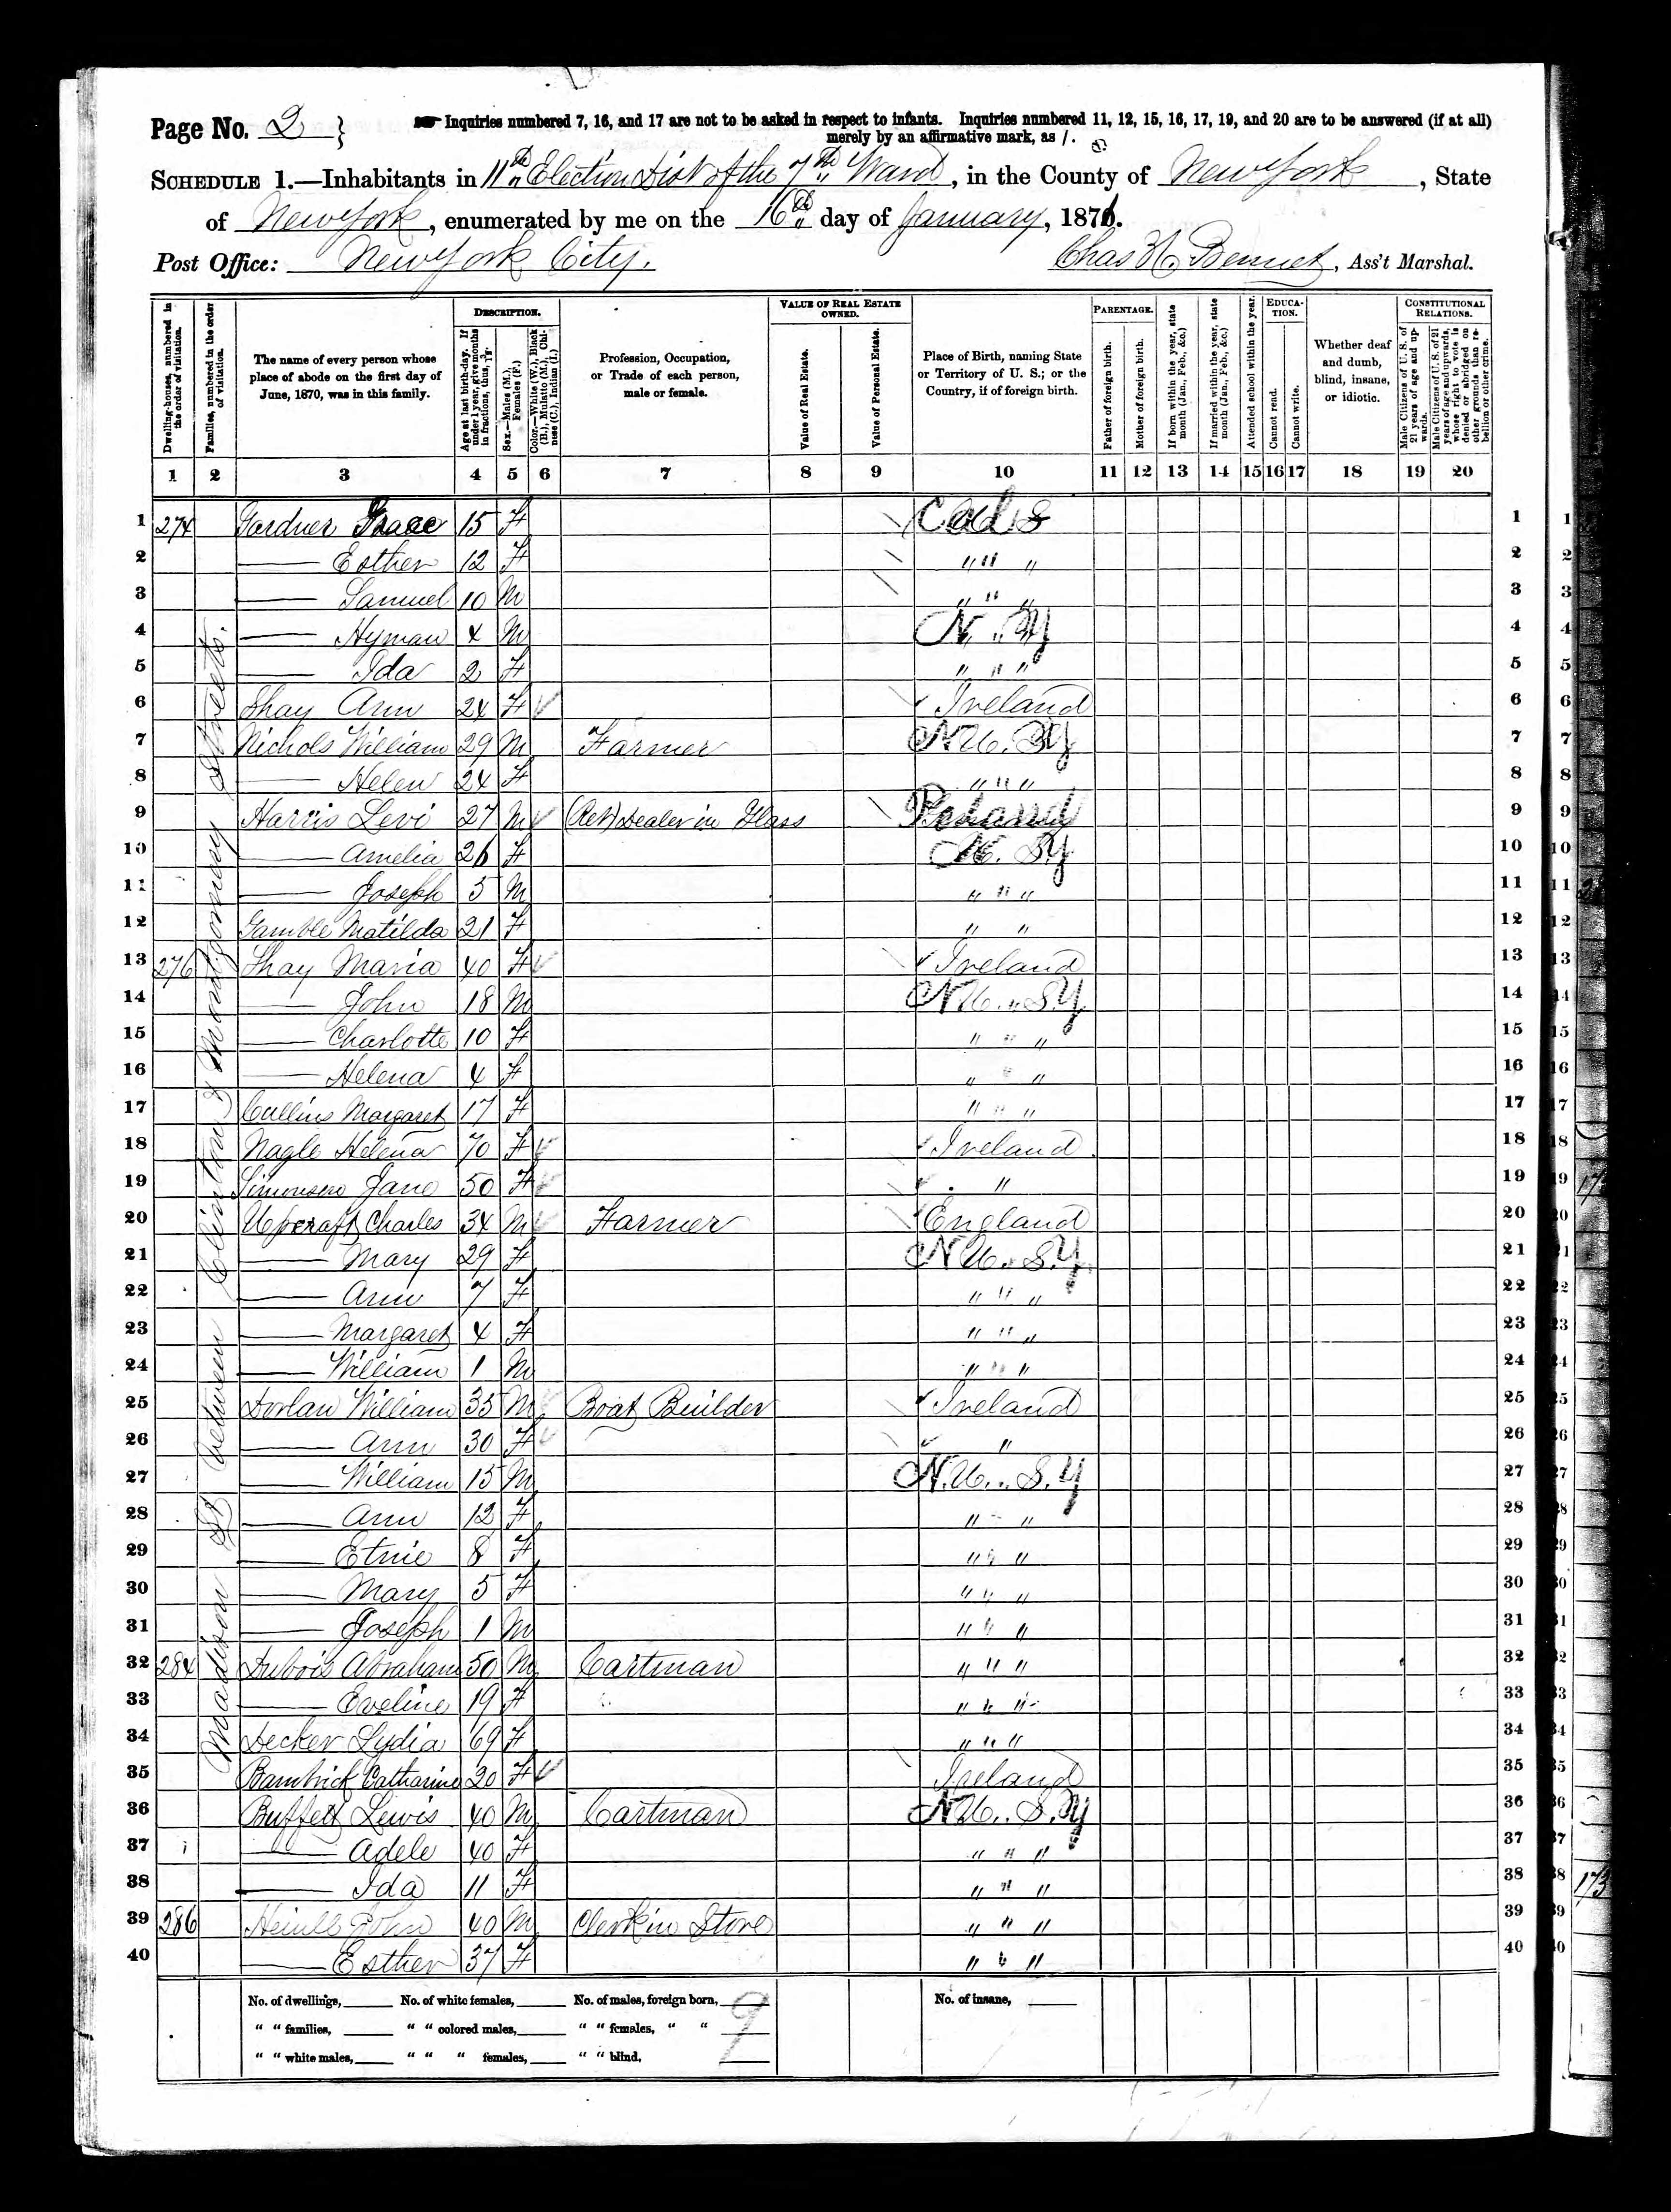 Page No. 2 }
Inquiries numbered 7, 16, and 17 are not to be asked in respect to infants. Inquiries numbered 11, 12, 15, 16, 17, 19, and 20 are to be answered (if at all)
merely by an affirmative mark, as /.
SCHEDULE 1.—Inhabitants in 11th Election Dist of the 7th Ward, in the County of New York, State
of New York, enumerated by me on the 16th day of January, 1871.
Post Office: New York City. Chas H. Bennet, Ass't Marshal.
Dwelling-houses, numbered in the order of visitation.
Families, numbered in the order of visitation.
The name of every person whose place of abode on the first day of June, 1870, was in this family.
DESCRIPTION.
Age at last birth-day. If under 1 year, give months in fractions, thus,
Sex.—Males (M.), Females (F.)
Color.—White (W.), Black (B.), Mulatto (M.), Chinese (C.), Indian (I.)
Profession, Occupation, or Trade of each person, male or female.
VALUE OF REAL ESTATE OWNED.
Value of Real Estate.
Value of Personal Estate.
Place of Birth, naming State or Territory of U. S.; or the Country, if of foreign birth.
PARENTAGE.
Father of foreign birth.
Mother of foreign birth.
If born within the year, state month (Jan., Feb., &c.)
If married within the year, state month (Jan., Feb., &c.)
Attended school within the year.
EDUCATION.
Cannot read.
Cannot write.
Whether deaf and dumb, blind, insane, or idiotic.
CONSTITUTIONAL RELATIONS.
Male Citizens of U. S. of 21 years of age and upwards.
Male Citizens of U. S. of 21 years of age and upwards, whose right to vote is denied or abridged on other grounds than rebellion or other crime.
1 2 3 4 5 6 7 8 9 10 11 12 13 14 15 16 17 18 19 20
Madison St between Clinton & Montgomery Streets.
1 274 Gardner Grace 15 F 1
2 — Esther 12 F " " " 2
3 — Samuel 10 M " " " 3
4 — Hyman 4 M N. Y 4
5 — Ida 2 F " " " 5
6 Shay Ann 24 F Ireland 6
7 Nichols William 29 M Farmer N.Y 7
8 — Helen 24 F " " " 8
9 Harris Levi 27 M (Ret) Dealer in Glass 9
10 — Amelia 26 F N. Y 10
11 — Joseph 5 M " " " 11
12 Gamble Matilda 21 F " " 12
13 276 Shay Maria 40 F Ireland 13
14 — John 18 M N.Y 14
15 — Charlotte 10 F " " " 15
16 — Helena 4 F " " " 16
17 Cullins Margaret 17 F " " " 17
18 Nagle Helena 70 F Ireland 18
19 Simonson Jane 50 F " 19
20 Upcraft Charles 34 M Farmer England 20
21 — Mary 29 F N.Y 21
22 — Ann 7 F " " " 22
23 — Margaret 4 F " " " 23
24 — William 1 M " " " 24
25 Dorlan William 35 M Boat Builder Ireland 25
26 — Ann 30 F " 26
27 — William 15 M N.Y 27
28 — Ann 12 F " " " 28
29 — Etnie 8 F " " " 29
30 — Mary 5 F " " " 30
31 — Joseph 1 M " " " 31
32 284 Dubois Abraham 50 M Cartman " " " 32
33 — Eveline 19 F " " " 33
34 Decker Lydia 69 F " " " 34
35 Bambrick Catharine 20 F Ireland 35
36 Buffett Lewis 40 M Cartman N.Y 36
37 — Adele 40 F " " " 37
38 — Ida 11 F " " " 38
39 286 John 40 M Clerk in Store " " " 39
40 — Esther 37 F " " " 40
No. of dwellings, No. of white females, No. of males, foreign born, No. of insane,
" " families, " " colored males, " " females, " " 9
" " white males, " " " females, " " blind,